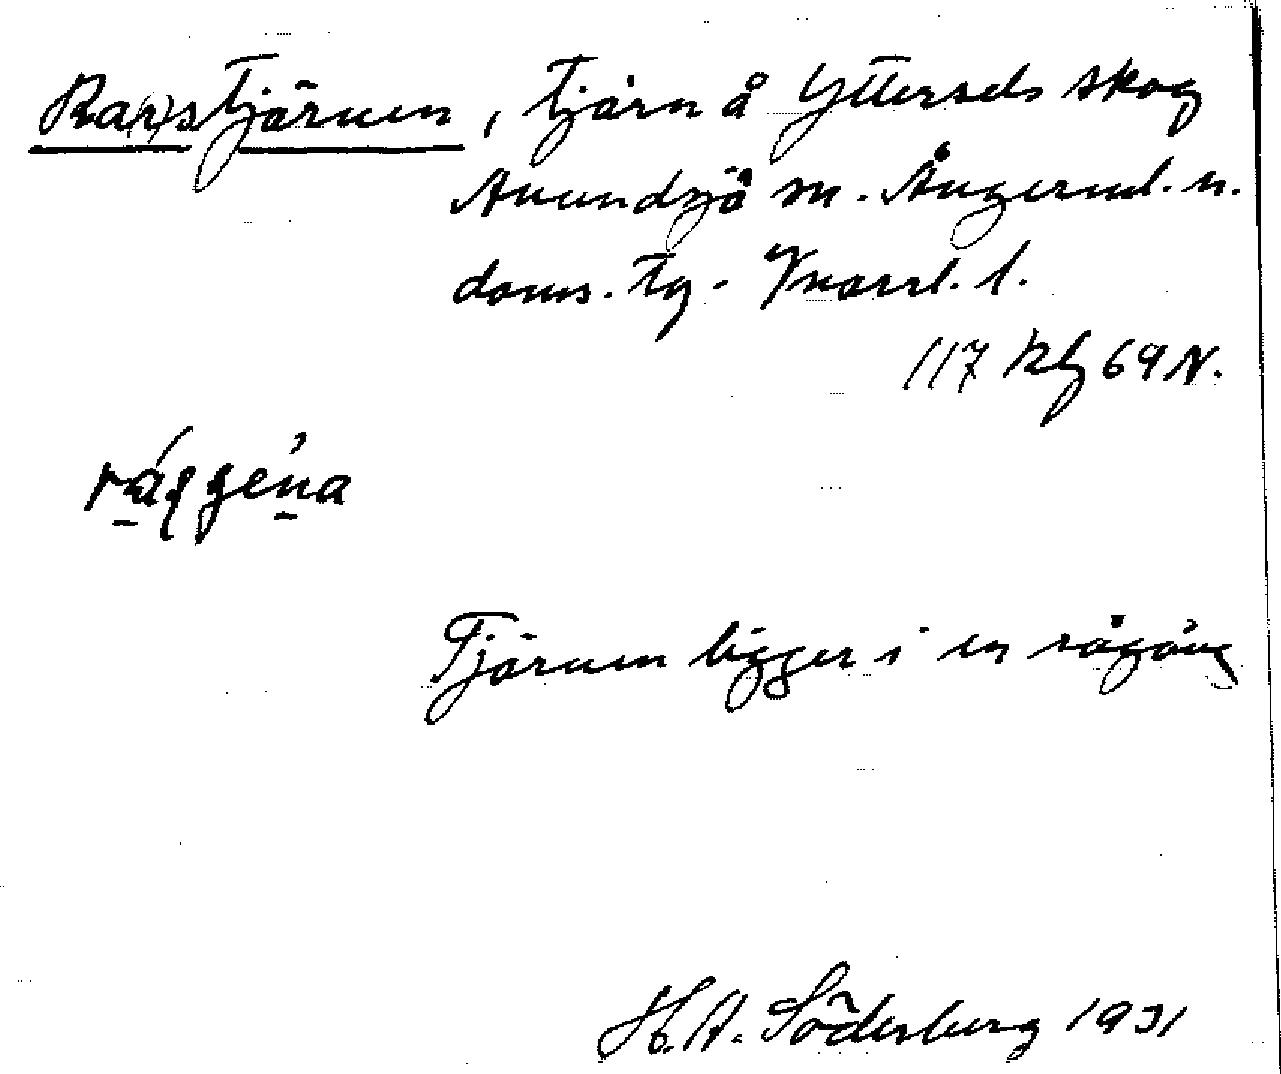 Ra(r)stjärnen, tjärn å Yttersels skog
Anundsjö sn. Ångerml. n.
doms. tg. Vnorrl. l.
117 blg 69 N.
Tjärnen ligger i en rågång
H. A. Söderberg 1931